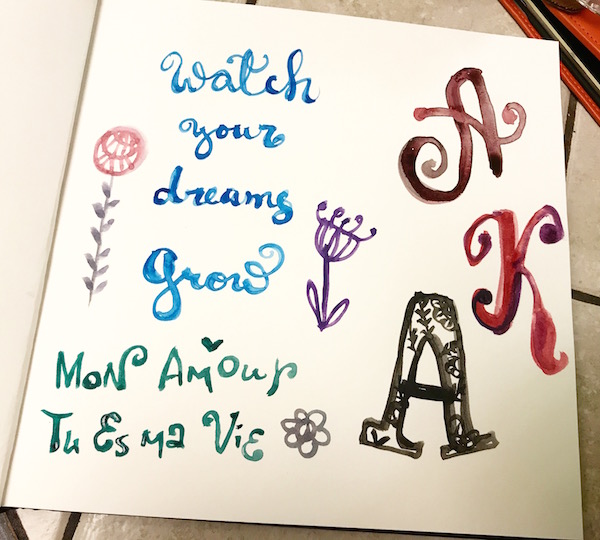 Watch
your
dreams
Grow
Mon Amour
Tu Es ma Vie
A
K
A